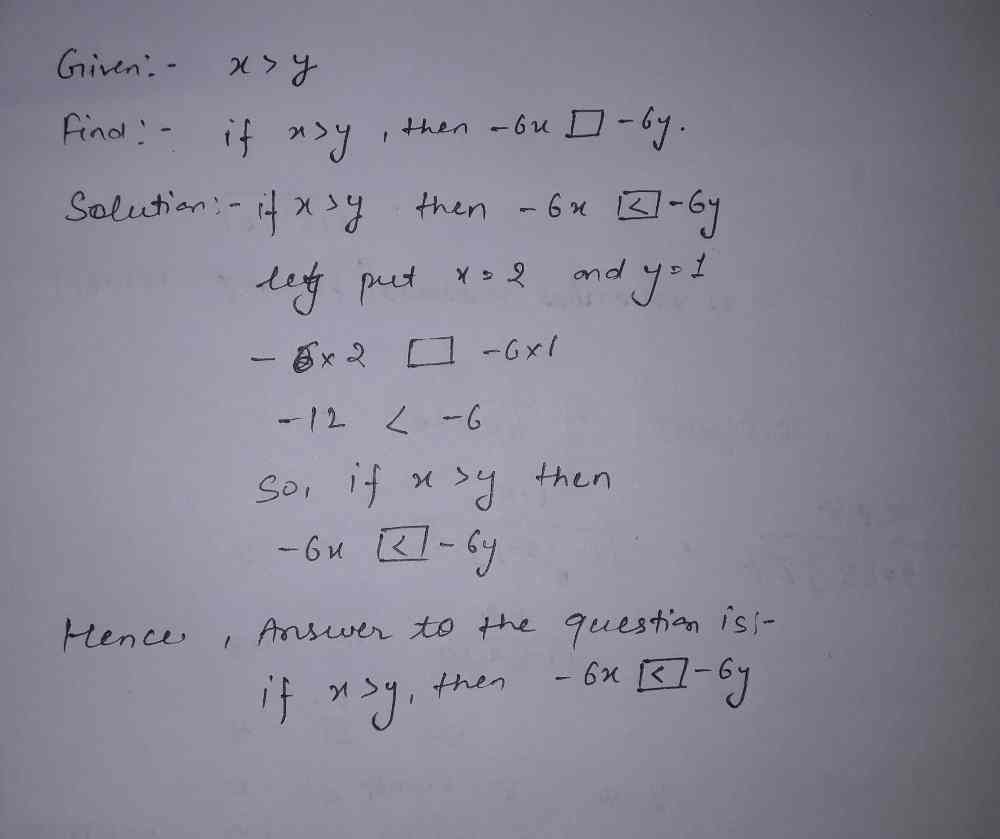 Given:- x > y
Find:- if x>y , then -6x □ -6y.
Solution:- if x>y then -6x [<] -6y
put x=2 and y=1
-6x2 □ -6x1
-12 < -6
So, if x >y then
-6x [<] -6y
Hence , Answer to the question is:-
if x>y, then -6x [<] -6y